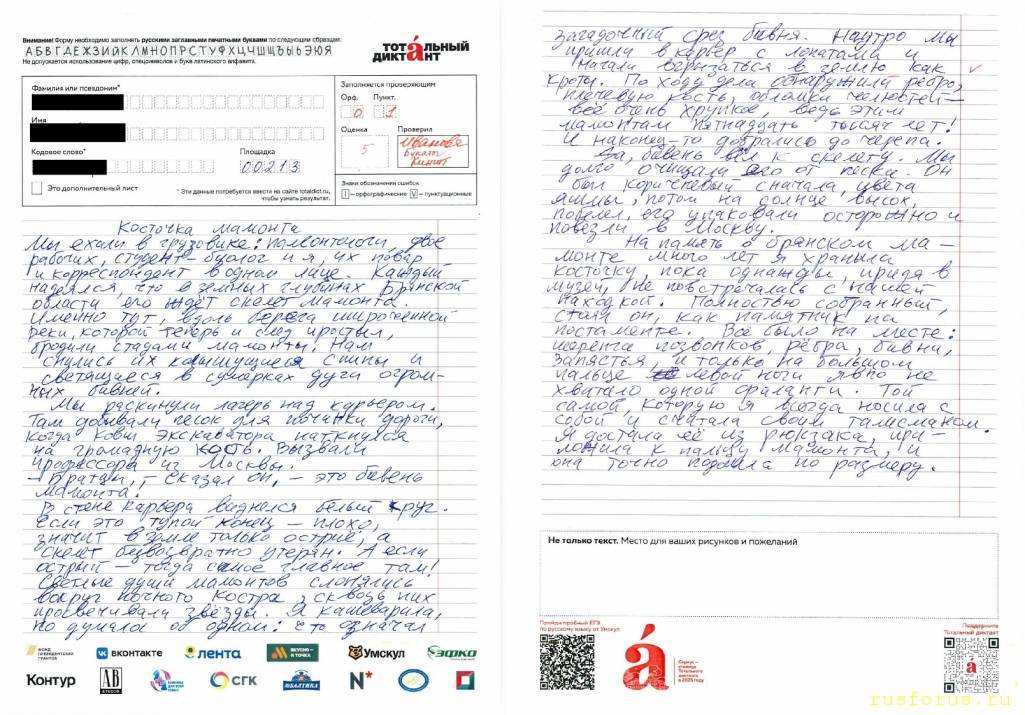 Внимание! Форму необходимо заполнять русскими заглавными печатными буквами по следующим образцам:
АБВГДЕЖЗИЙКЛМНОПРСТУФХЦЧШЩЪЫЬЭЮЯ
Не допускается использование цифр, спецсимволов и букв латинского алфавита.
тотáльный
диктант
Фамилия или псевдоним*
Имя
Кодовое слово*
Площадка
00213
Это дополнительный лист
* Эти данные потребуется ввести на сайте totaldict.ru, чтобы узнать результат.
Заполняется проверяющим
Орф. Пункт.
0 1
Оценка Проверил
5 Иванова
Знаки обозначения ошибок
I — орфографические V — пунктуационные
Косточка мамонта
Мы ехали в грузовике: палеонтологи, двое
рабочих, студент-биолог и я, их повар
и корреспондент в одном лице. Каждый
надеялся, что в земных глубинах Брянской
области его ждёт скелет мамонта.
Именно тут, вдоль берега широченной
реки, которой теперь и след простыл,
бродили стадами мамонты. Нам
снились их колышущиеся спины и
светящиеся в сумерках дуги огром-
ных бивней.
Мы раскинули лагерь над карьером.
Там добывали песок для починки дороги,
когда ковш экскаватора наткнулся
на громадную кость. Вызвали
профессора из Москвы.
– Братцы, – сказал он, – это бивень
мамонта!
В стене карьера виднелся белый круг.
Если это тупой конец – плохо,
значит в земле только острие, а
скелет безвозвратно утерян. А если
острый – тогда самое главное там!
Светлые души мамонтов слонялись
вокруг ночного костра, сквозь них
просвечивали звёзды. Я кашеварила,
но думала об одном: что означал
ФОНД ПРЕЗИДЕНТСКИХ ГРАНТОВ
вконтакте
лента
ВКУСНО — И ТОЧКА
Умскул
ЭФКО
Контур
АВ
СГК
БАЛТИКА
N*
загадочный срез бивня. Наутро мы
пришли в карьер с лопатами и
начали вгрызаться в землю как
кроты. По ходу дела обнаружили ребро,
плечевую кость, обломки челюстей –
всё очень хрупкое, ведь этим
мамонтам пятнадцать тысяч лет!
И наконец-то добрались до черепа.
Да, бивень вёл к скелету. Мы
долго очищали его от песка. Он
был коричневый сначала, цвета
яшмы, потом на солнце высох,
побелел, его упаковали осторожно и
повезли в Москву.
На память о брянском ма-
монте много лет я хранила
косточку, пока однажды, придя в
музей, не повстречалась с нашей
находкой. Полностью собранный,
стоял он, как памятник на
постаменте. Всё было на месте:
шеренга позвонков, рёбра, бивни,
запястья, и только на большом
пальце левой ноги явно не
хватало одной фаланги. Той
самой, которую я всегда носила с
собой и считала своим талисманом.
Я достала её из рюкзака, при-
ложила к пальцу мамонта, и
она точно подошла по размеру.
Не только текст. Место для ваших рисунков и пожеланий
Пройди пробный ЕГЭ
по русскому языку от Умскул
á
Тотального
диктанта
в 2025 году
Поддержите
Тотальный диктант
rusforus.ru